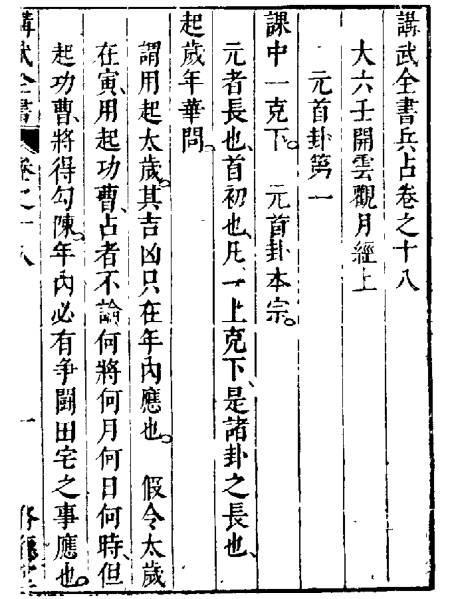 講武全書兵占卷之十八
大六壬開雲觀月經上
元首卦第一
課中一克下。 元首卦本宗。
元者長也、首初也、凡一上克下、是諸卦之長也、
起歲年華問。
謂用起太歲。其吉凶只在年內應也。 假令太歲
在寅、用起功曹、占者不論何將何月何日何時、但
起功曹、將得勾陳。年內必有爭鬪田宅之事應也。
講武全書 卷之十八 一